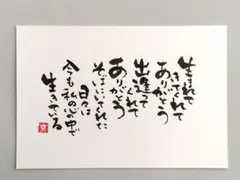 生まれて
きてくれて
ありがとう
出逢って
くれて
ありがとう
そばにいてくれた
日々は
今も私の心の中で
生きている